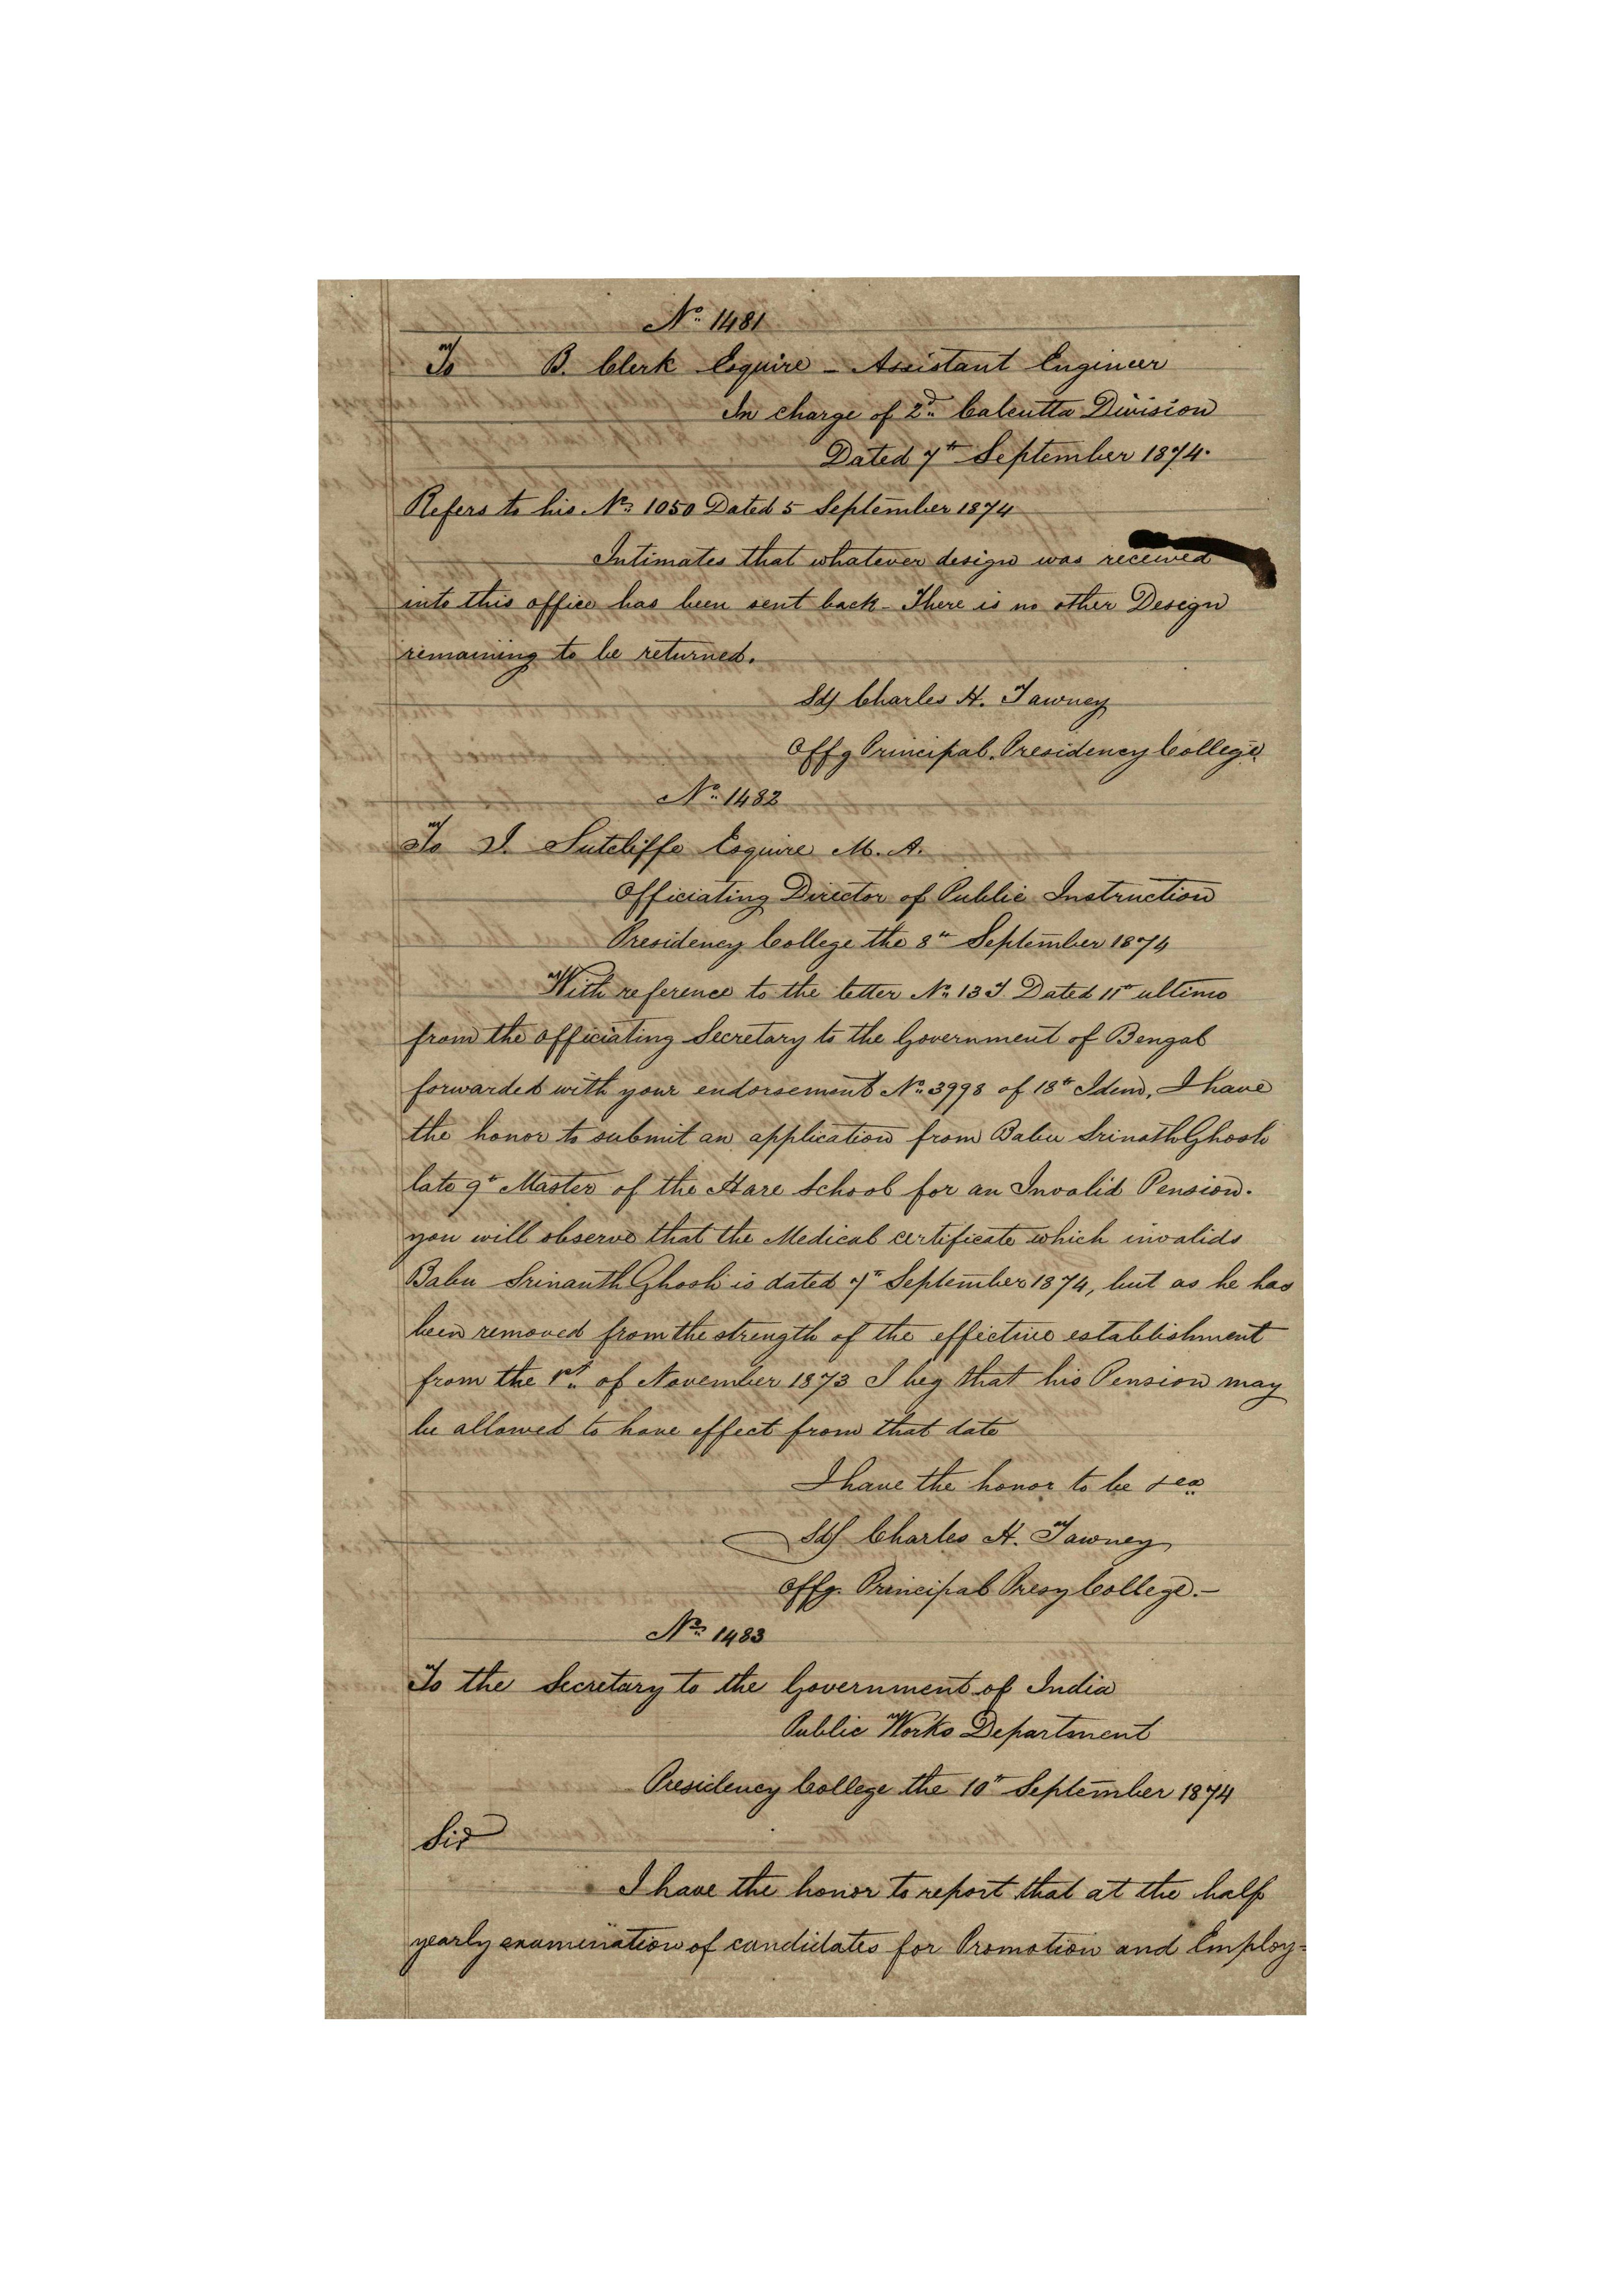 No 1481
To B. Clerk Esquire - Assistant Engineer
In charge of 2d Calcutta Division
Dated 7th September 1874.
Refers to his No 1050 Dated 5 September 1874
Intimates that whatever design was received
into this office has been sent back - There is no other Design
remaining to be returned.
Sd/ Charles H. Tawney
Offg Principal, Presidency College.
No 1482
To J. Sutcliffe Esquire M. A.
Officiating Director of Public Instruction
Presidency College the 8th September 1874
With reference to the letter No 13 J. Dated 11th ultimo
from the officiating Secretary to the Government of Bengal
forwarded with your endorsement No 3998 of 18th Idem, I have
the honor to submit an application from Babu Srinath Ghosh
late 9th Master of the Hare School for an Invalid Pension.
you will observe that the Medical certificate which invalids
Babu Srinanth Ghosh is dated 7th September 1874, but as he has
been removed from the strength of the effective establishment
from the 1st of November 1873 I beg that his Pension may
be allowed to have effect from that date
I have the honor to be &ca
Sd/ Charles H. Tawney
Offg. Principal Presy College. -
No 1483
To the Secretary to the Government of India
Public Works Department
Presidency College the 10th September 1874
Sir
I have the honor to report that at the half
yearly examination of candidates for Promotion and Employ=